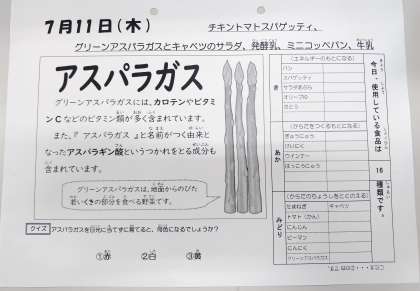 7月11日(木)
チキントマトスパゲッティ、
グリーンアスパラガスとキャベツのサラダ、発酵乳、ミニコッペパン、牛乳
アスパラガス
グリーンアスパラガスには、カロテンやビタミ
ンCなどのビタミン類が多く含まれています。
また、『アスパラガス』と名前がつく由来と
なったアスパラギン酸というつかれをとる成分も
含まれています。
グリーンアスパラガスは、地面からのびた
若いくきの部分を食べる野菜です。
クイズ アスパラガスを日光に当てずに育てると、何色になるでしょうか?
①赤 ②白 ③黄
今日、使用している食品は
16
種類です。
き
(エネルギーのもとになる)
パン
スパゲッティ
サラダあぶら
オリーブ油
さとう
あか
(からだをつくるもとになる)
ぎゅうにゅう
けいにく
ウインナー
はっこうにゅう
みどり
(からだのちょうしをととのえる)
たまねぎ キャベツ
トマト(かん)
にんじん
ピーマン
にんにく
グリーンアスパラガス